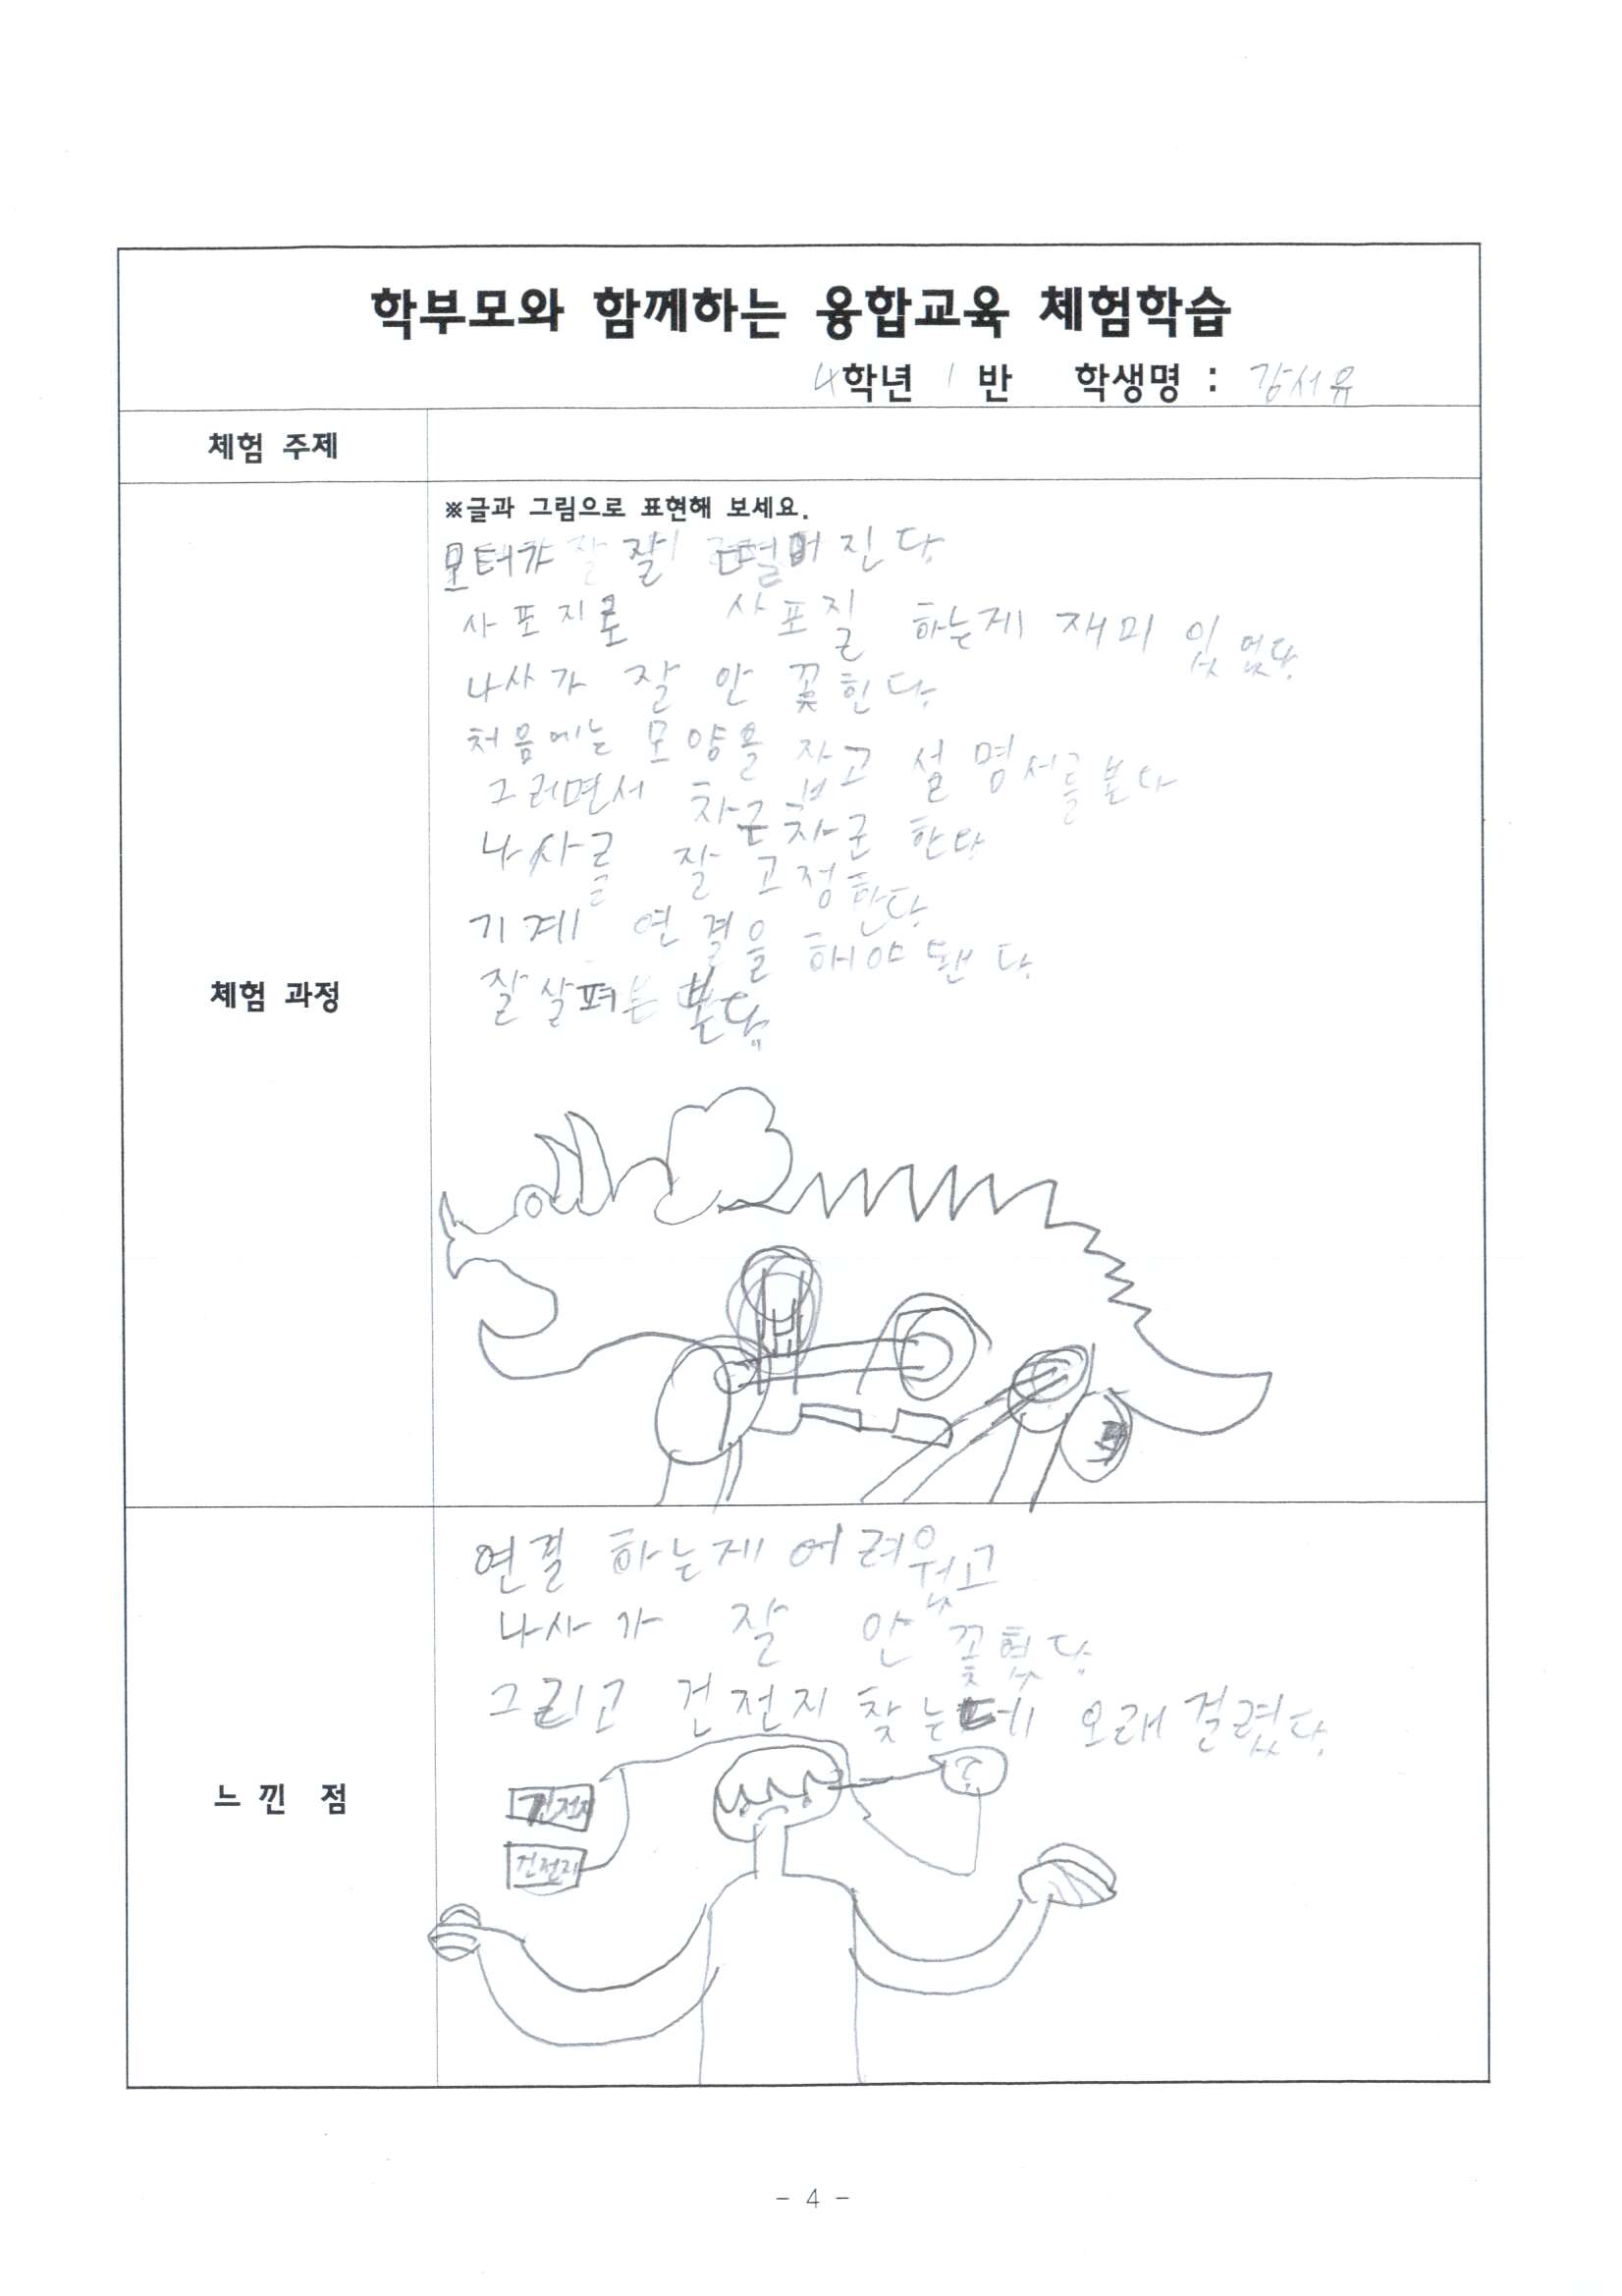 학부모와 함께하는 융합교육 체험학습
4학년 1 반 학생명 : 강서유
체험 주제
체험 과정
※글과 그림으로 표현해 보세요.
모터가 잘 진다
사포지로 사포질 하는게 재미 있었다
나사가 잘 안 꽃힌다
처음에는 모양을 보고 설명서를 본다
그러면서 차근차근 한다
나사를 잘 고정한다
기계 연결을 해야 됀다
잘 살펴 본다
느 낀 점
연결 하는게 어려웠고
나사가 잘 안 꽃혔다
그리고 건전지 찾는데 오래 걸렸다
건전지
건전지
- 4 -